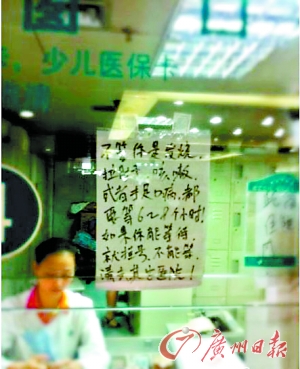 少儿医保卡
不管你是发烧、
拉肚子、咳嗽
或者手足口病,都
要等6~8个小时!
如果你能等候,
就挂号,不能等,
请去其它医院!
4
广州日报